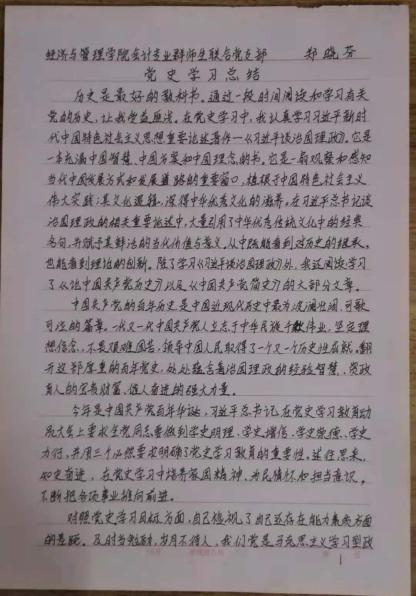 经济与管理学院会计专业群师生联合党支部 郑晓芬
党史学习总结
历史是最好的教科书。通过一段时间阅读和学习有关
党的历史，让我受益匪浅。在学习中，我认真学习习近平新时
代中国特色社会主义思想重要论述著作—《习近平谈治国理政》。它是
一本充满中国智慧、中国方案和中国理念的书。它是一扇观察和感知
当代中国发展方式和发展道路的重要窗口，植根于中国特色社会主义
伟大实践；其文化逻辑，深得中华优秀文化的滋养。在习近平总书记谈
治国理政的相关重要论述中，大量引用了中华优秀传统文化中的经典
名句，并赋予其鲜活的当代价值与意义。从中既能看到对历史的继承，
也能看到理论的创新。除了学习《习近平谈治国理政》外，我还阅读学习
了《论中国共产党历史》以及《中国共产党简史》的大部分文章。
中国共产党的百年历史是中国近现代历史中最为波澜壮阔、可歌
可泣的篇章。一代又一代中国共产党人立志于中华民族千秋伟业，坚定理
想信念，不畏艰难困苦，领导中国人民取得了一个又一个历史性成就。翻
开这部厚重的百年党史，处处蕴含着治国理政的经验智慧、资政
育人的宝贵财富、催人奋进的强大力量。
今年是中国共产党百年华诞，习近平总书记在党史学习教育动
员大会上要求全党同志要做到学史明理、学史增信、学史崇德、学史
力行，并用三个必然要求明确了党史学习教育的重要性。述往思来，
知史奋进，在党史学习中培养家国精神、为民情怀和担当意识，
不断把各项事业推向前进。
对照党史学习目标方面，自己
的差距。及时当勉励，岁月不待人，我们党是马克思主义学习型政
1